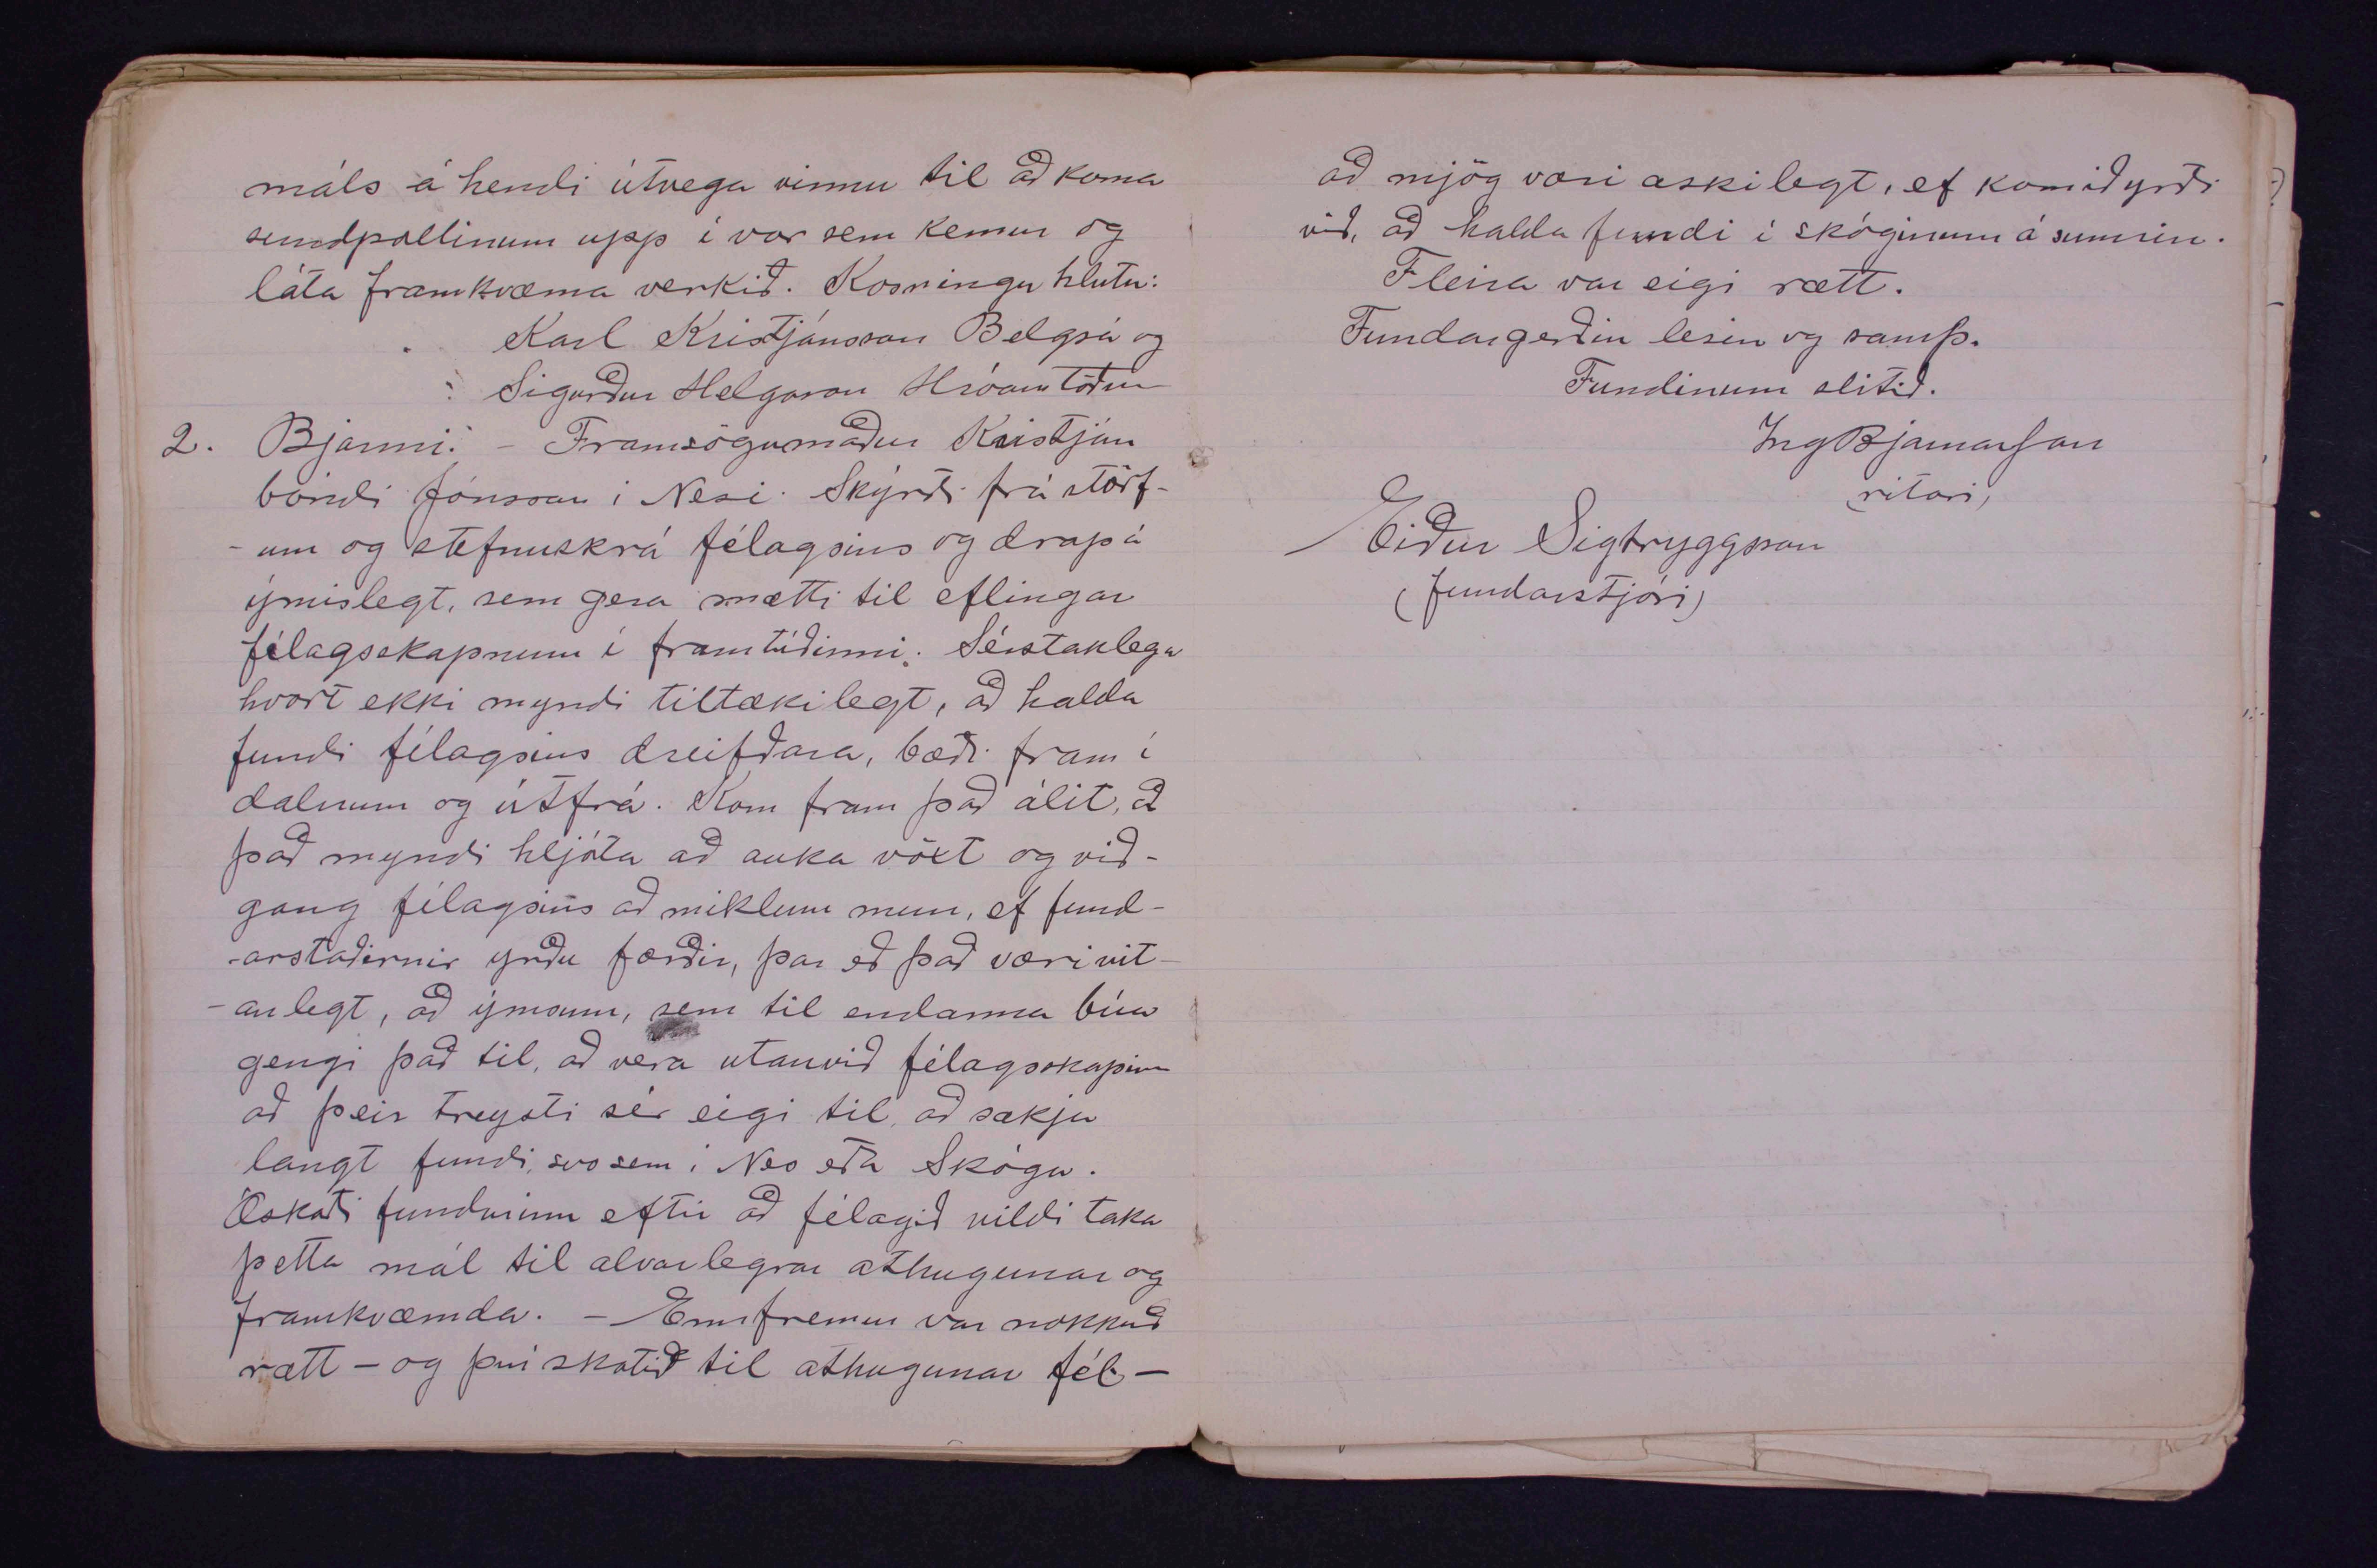 máls á hendi útvega vinnu til að koma
sundpollinum upp í vor sem kemur og
láta framkvæma verkið. Kosningu hlutu:
Karl Kristjánsson Belgsá og
Sigurður Helgason Hróarstöðum
2. Bjarmi: - Framsögumaður Kristján
bóndi Jónsson í Nesi. Skýrði frá störf-
-um og stefnuskrá félagsins og drap á
ýmislegt, sem gera mætti til eflingar
félagsskapnum í framtíðinni. Sérstaklega
hvort ekki myndi tiltækilegt, að halda
fundi félagsins dreifðara, bæði fram í
dalnum og útfrá. Kom fram það álit, að
það myndi hljóta að auka vöxt og við-
gang félagsins að miklum mun, ef fund-
-arstaðirnir yrðu færðir, þar eð það væri vit-
-anlegt, að ýmsum, sem til endanna búa
gengi það til, að vera utanvið félagsskapinn
að þeir treysti sér eigi til, að sækja
langt fundi, svo sem í Nes eða Skóga.
Óskaði fundurinn eftir að félagið vildi taka
þetta mál til alvarlegrar athugunar og
framkvæmda. - Ennfremur var nokkuð
rætt - og því skotið til athugunar fél. -
að mjög væri æskilegt, ef komið yrði
við, að halda fundi í skóginum á sumrin.
Fleira var eigi rætt.
Fundargerðin lesin og samþ.
Fundinum slitið.
Ing Bjarnarson
ritari,
Eiður Sigtryggsson
(fundarstjóri)